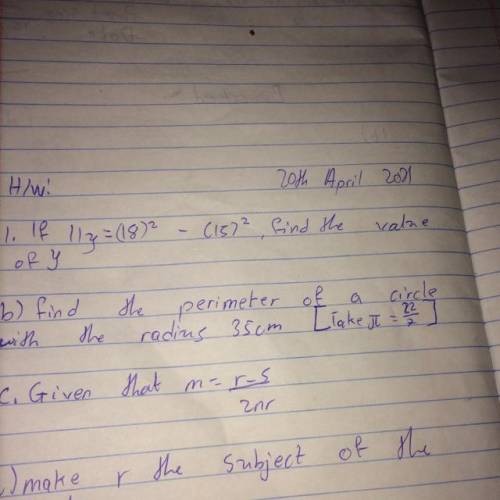 H/w: 20th April 2021
1. If 11y = (18)² - (15)², find the value
of y
b) find the perimeter of a circle
with the radius 35cm [Take π = 22/7]
c. Given that m = r-s/2nr
) make r the subject of the